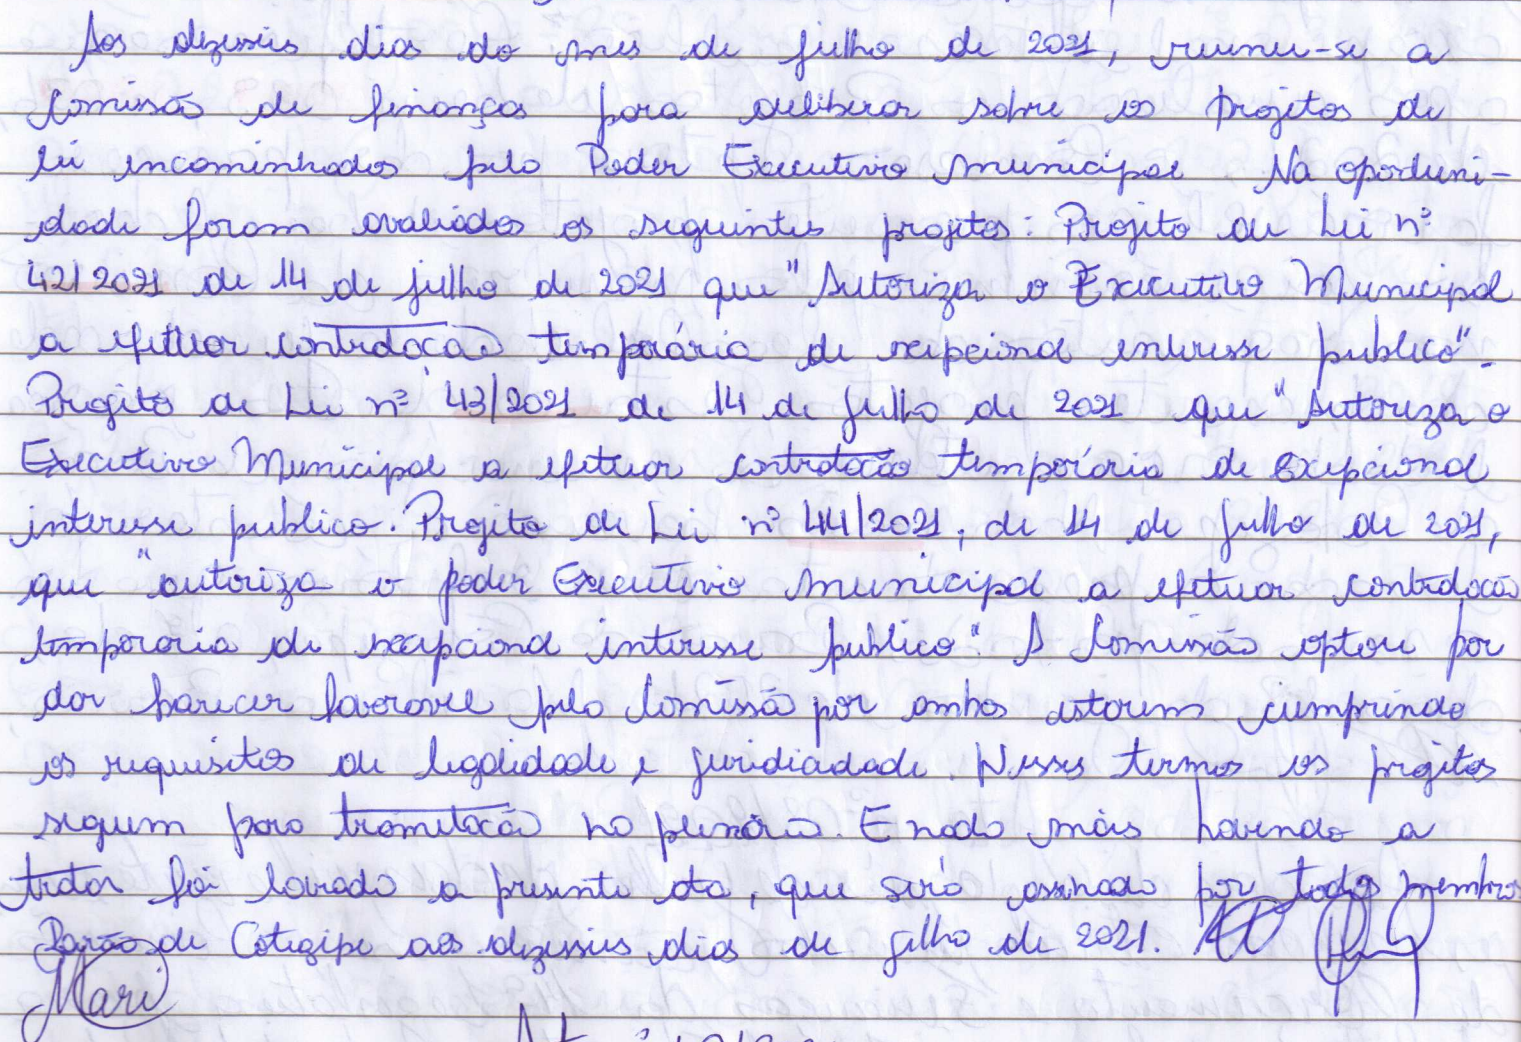 Aos dezesseis dias do mes de julho de 2021, reuniu-se a
Comissão de finanças para deliberar sobre os projetos de
lei encaminhados pelo Poder Executivo Municipal Na oportuni-
dade foram avaliados os seguintes projetos: Projeto de Lei nº
42/2021 de 14 de julho de 2021 que "Autoriza o Executivo Municipal
a efetuar contratação temporária de excepcional interesse publico".
Projeto de Lei nº 43/2021 de 14 de julho de 2021 que "Autoriza o
Executivo Municipal a efetuar contratação temporária de excepcional
interesse publico. Projeto de Lei nº 44/2021, de 14 de julho de 2021,
que "autoriza o poder Executivo Municipal a efetuar contratação
temporaria de excepcional interesse publico". A Comissão optou por
dar parecer favoravel pela Comissão por ambos estarem cumprindo
os requisitos de legalidade e juridicidade. Nesses termos os projetos
seguem para tramitação no plenário. E nada mais havendo a
tratar foi lavrado a presente ata, que será assinada por todos membros
Barão de Cotegipe aos dezesseis dias de julho de 2021.
Mari